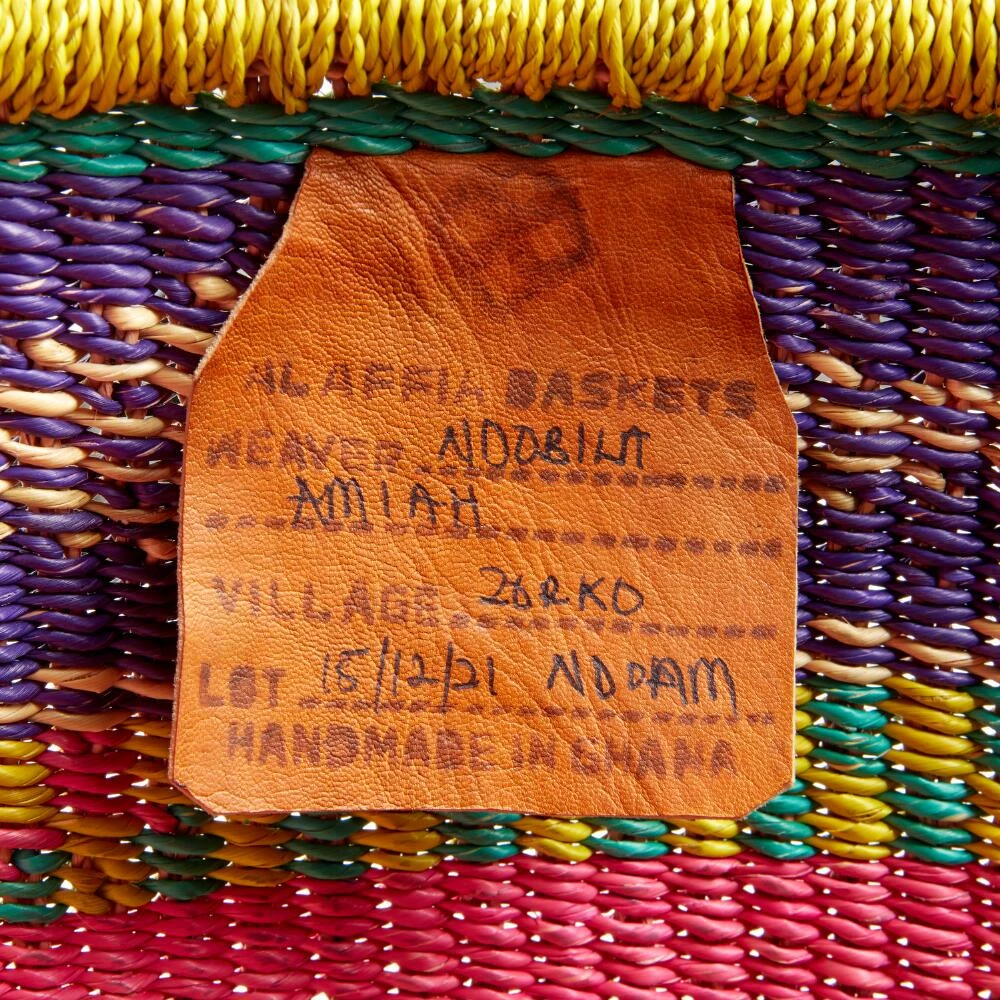 ALAFFIA BASKETS
WEAVER NDOBILA
AMIAH
VILLAGE ZORKO
LOT 15/12/21 NDDAM
HANDMADE IN GHANA